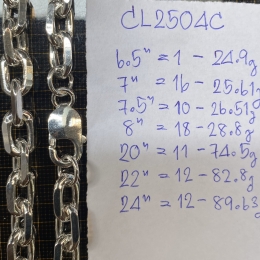 CL2504C
6.5" = 1 - 24.9g
7" = 16 - 25.61g
7.5" = 10 - 26.51g
8" = 18 - 28.8g
20" = 11 - 74.5g
22" = 12 - 82.8g
24" = 12 - 89.63g